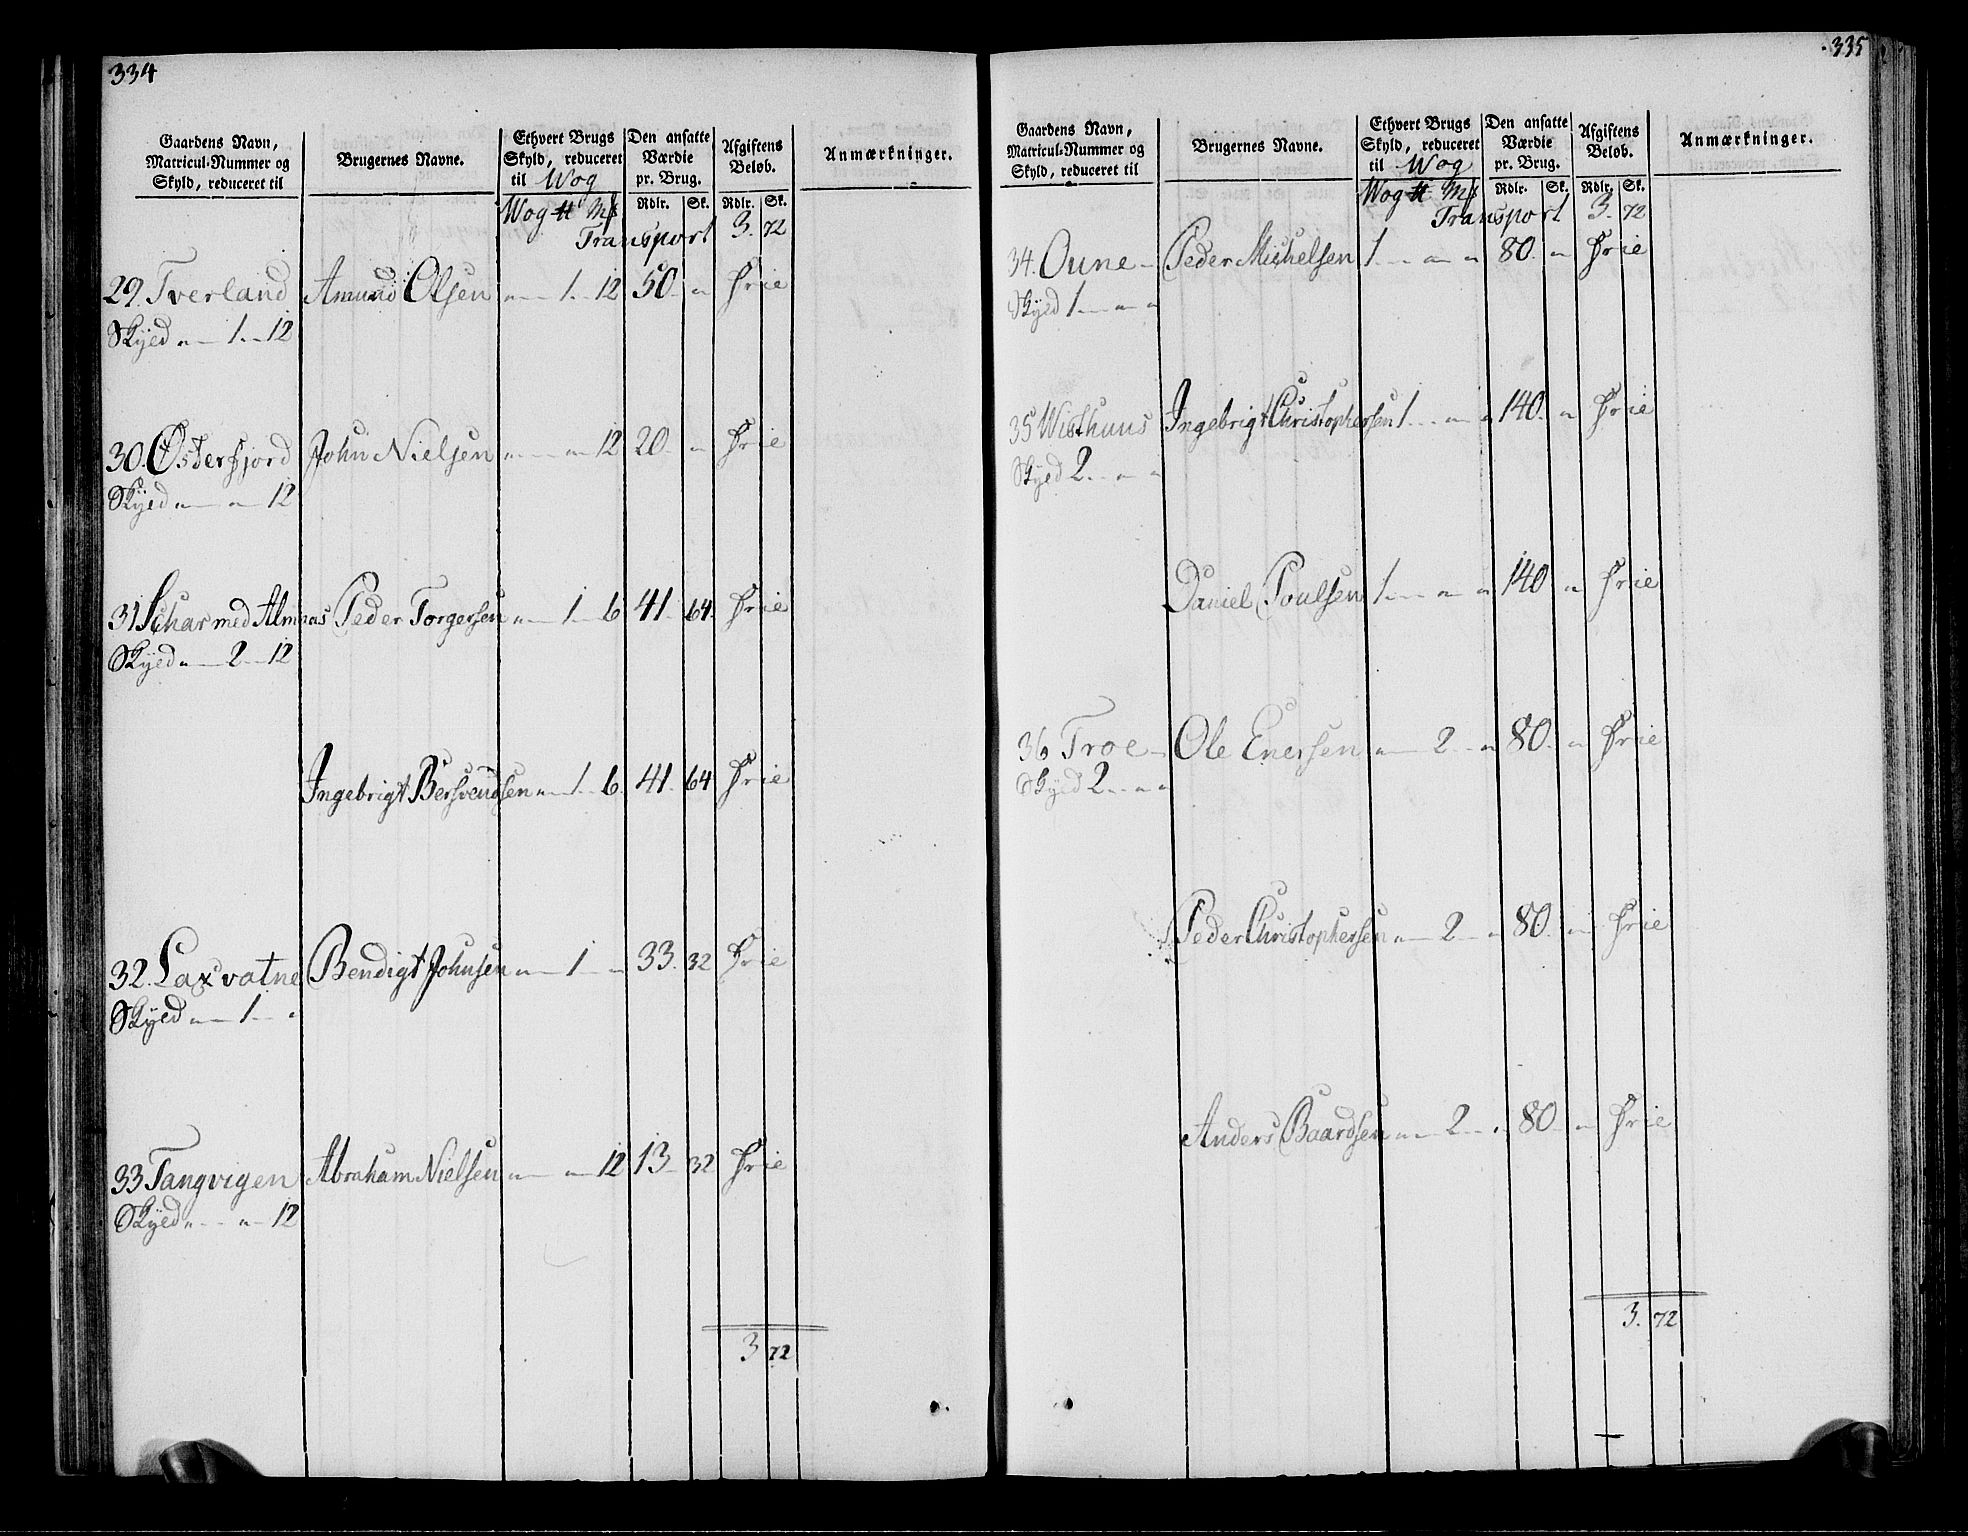 334
Gaardens Navn, Matricul-Nummer og Skyld, reduceret til
Brugernes Navne.
Ethvert Brugs Skyld, reduceret til Wog
Den ansatte Værdie pr. Brug.
Afgiftens Beløb.
Anmærkninger.
Wog ℔ Mk Rdlr. Sk. Rdlr. Sk.
Transport 3. 72
29. Tverland Amund Olsen " 1 12 50 " Frie
Skyld " 1 12
30. Østerfjord John Nielsen " " 12 20 " Frie
Skyld " " 12
31 Schar med Almnæs Peder Torgersen " 1 6 41 64 Frie
Skyld " 2 12
Ingebrigt Bersvendsen " 1 6 41 64 Frie
32. Laxvatne Bendigt Johnsen " 1 " 33 32 Frie
Skyld " 1 "
33 Tangvigen Abraham Nielsen " " 12 13 32 Frie
Skyld " " 12
3 72
335
Gaardens Navn, Matricul-Nummer og Skyld, reduceret til
Brugernes Navne.
Ethvert Brugs Skyld, reduceret til Wog
Den ansatte Værdie pr. Brug.
Afgiftens Beløb.
Anmærkninger.
Wog ℔ Mk Rdlr. Sk. Rdlr. Sk.
Transport 3. 72
34. Oune Peder Michelsen 1 " " 80 " Frie
Skyld 1 " "
35 Wisthuus Ingebrigt Christophersen 1 " " 140 " Frie
Skyld 2 " "
Daniel Poulsen 1 " " 140 " Frie
36 Troe Ole Enersen " 2 " 80 " Frie
Skyld 2 " "
Peder Christophersen " 2 " 80 " Frie
Anders Baardsen " 2 " 80 " Frie
3. 72